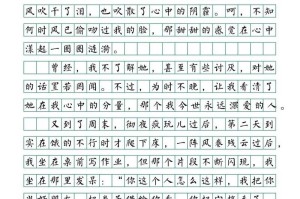 风吹干了泪，也吹散了心中的阴霾。呵，不知
何时风已偷吻过我的脸，那甜甜的感觉在心中
漾起一圈圈涟漪。
曾经，我不了解她，甚至有些讨厌，对她
的话置若罔闻。不过，为时不晚，让我看清了
她在我心中的分量，那个我今世永远深爱的人。
又到了周末，彻夜疯玩儿过后，第二天到
实在饿的不行时才爬下床，一阵风卷残云过后，
我坐在桌前写作业，但那个片段不断闪现，我
坐在那里发呆：“你这个人怎么这样，我把你